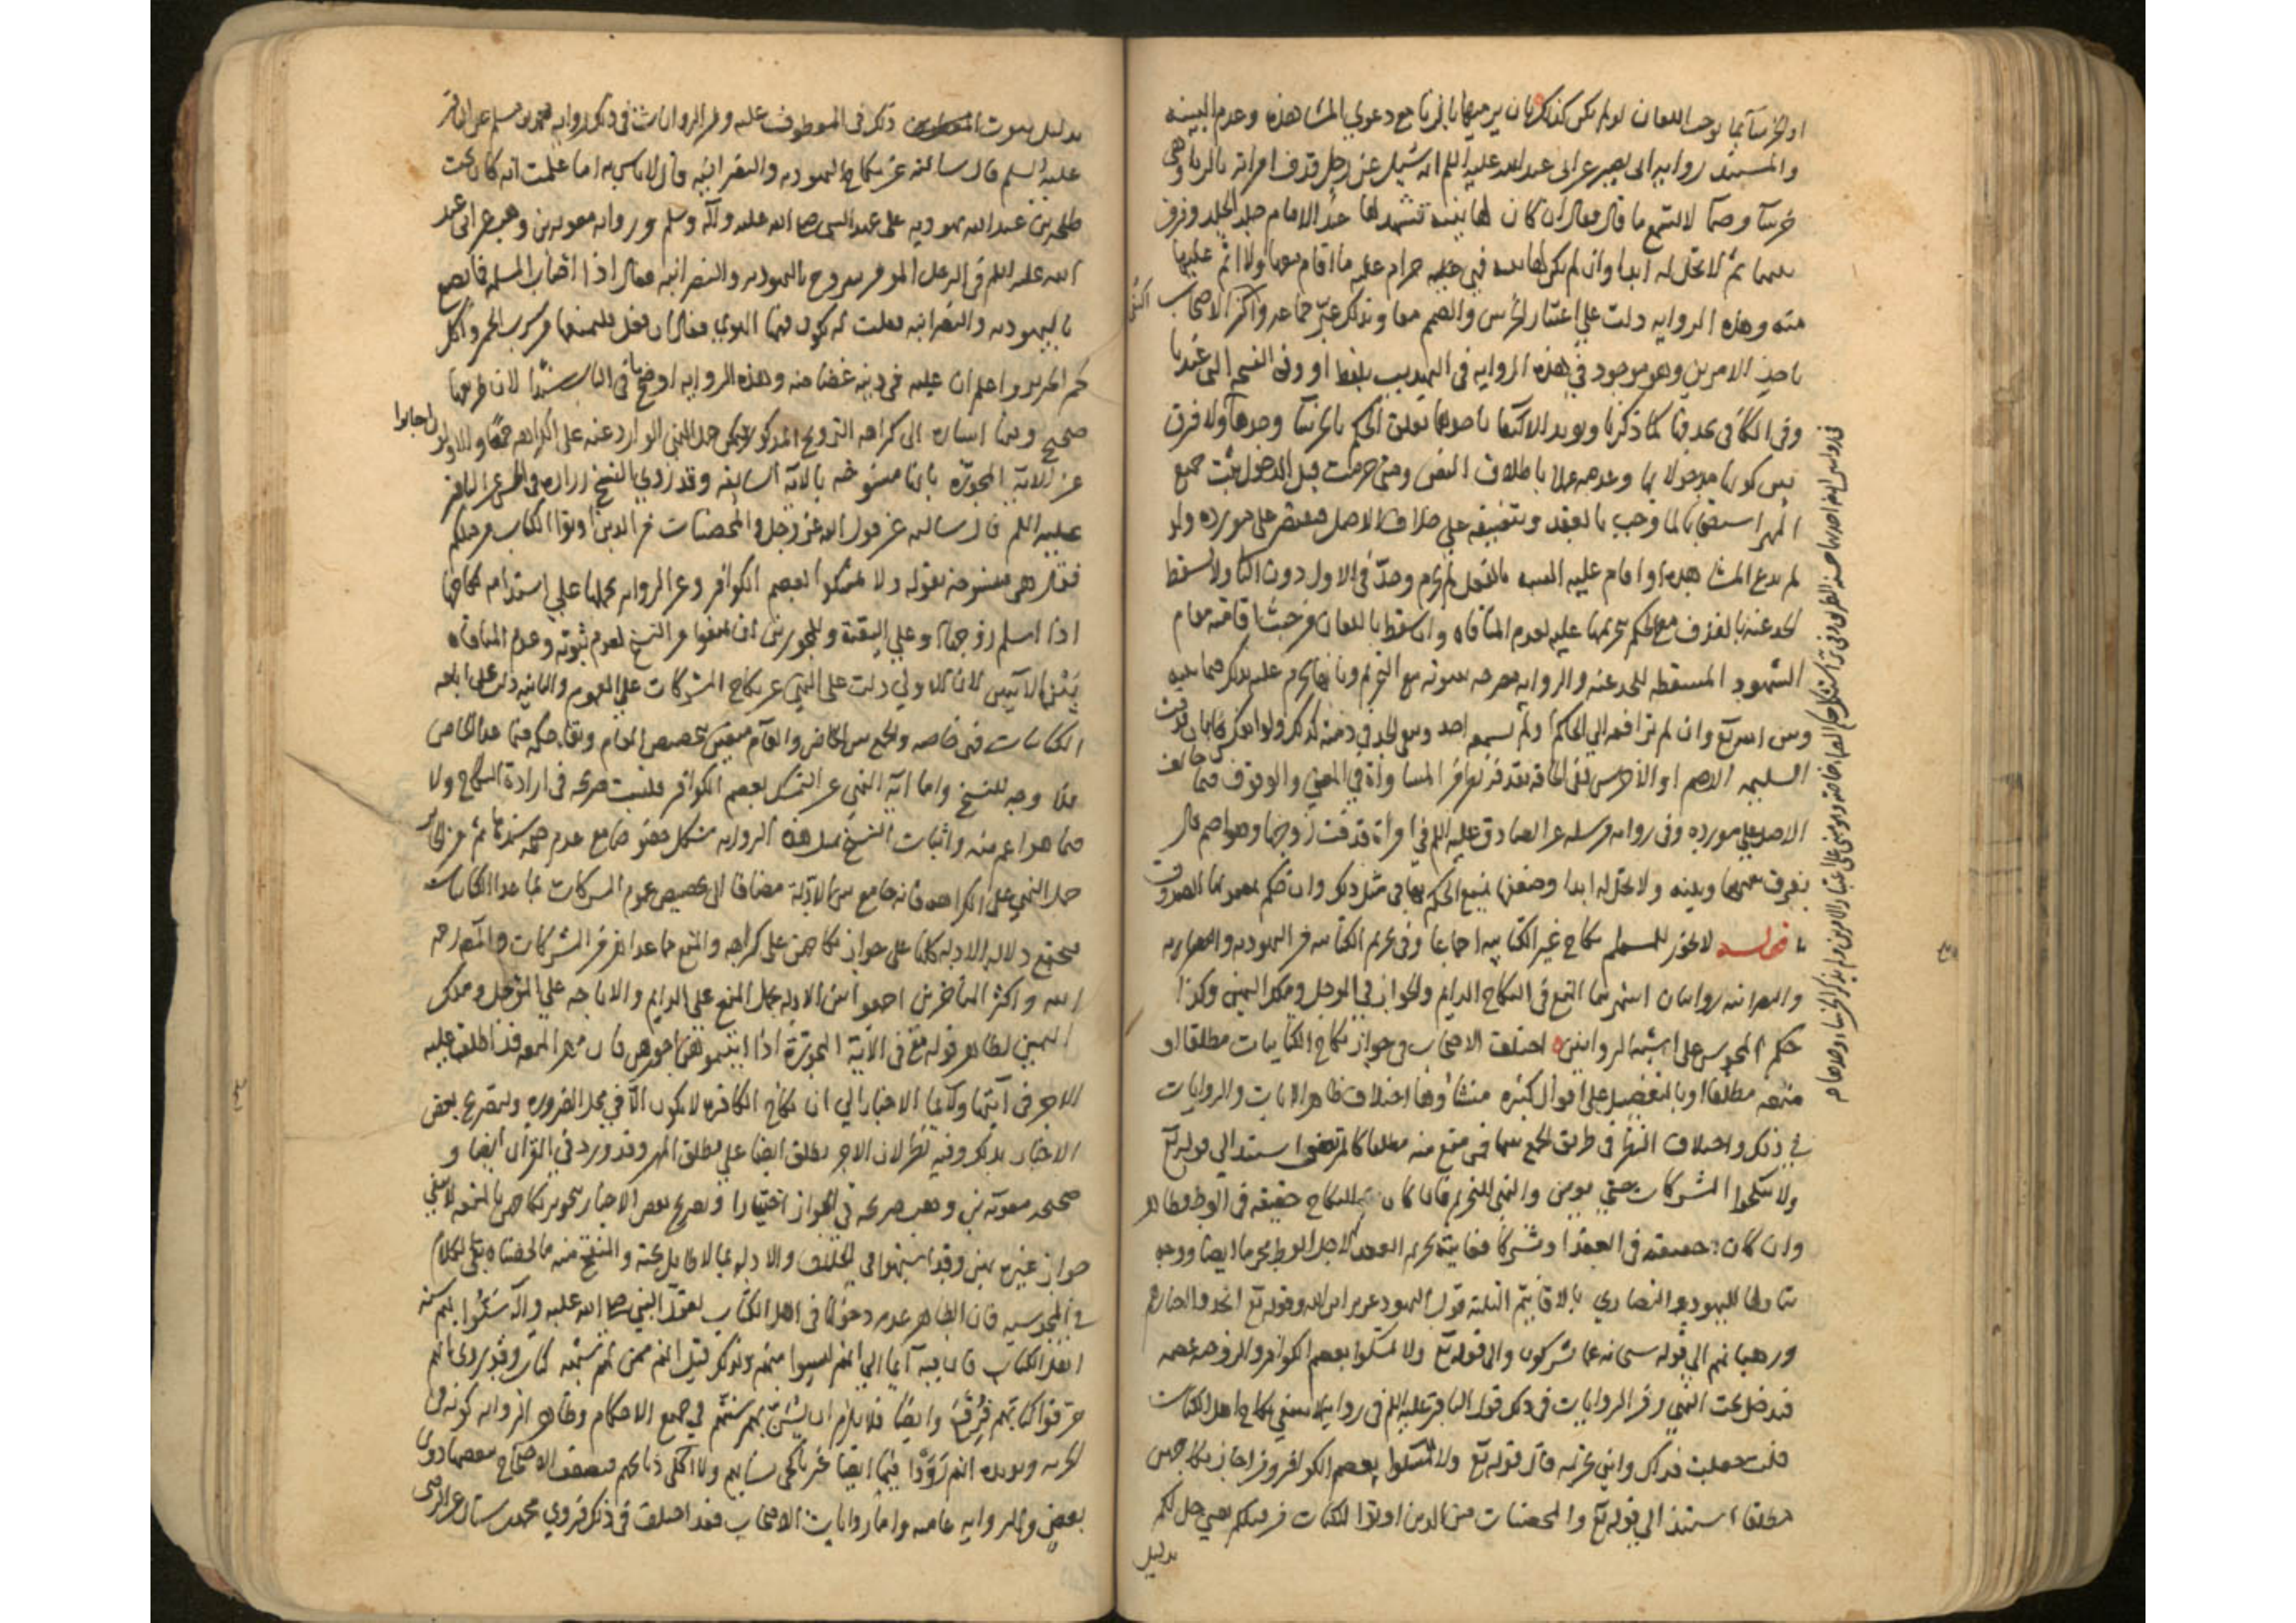 او خرسآ بما يوجب اللعان لو لم تكن كذلك بان يرميها بالزنا مع دعوى المشاهدة وعدم البينه
والمستند روايه ابى بصير عن ابى عبد الله عليه السلم انه سئل عن رجل قذف امراته بالزنا وهى
خرسآ وصمآ لا تسمع ما قال فقال ان كان لها بينه تشهد لها عند الامام جلد الحد وفرق
بينهما ثم لا تحل له ابدا وان لم تكن لها بينه فهى حرام عليه ما اقام معها ولا اثم عليها
منه وهذه الروايه دلت على اعتبار الخرس والصمم معا وبذلك عبر جماعه واكثر الاصحاب
باحد الامرين وهو موجود فى هذه الروايه فى التهذيب بلفظ او وفى النسخه التى عندنا
وفى الكافى بحذفها كما ذكرنا ويويد الاكتفا باحدهما تعلق الحكم بالخرسآ وحدها ولا فرق
بين كونها مدخولا بها وعدمه عملا باطلاق النص ومتى حرمت قبل الدخول يثبت جميع
المهر استصحابا لما وجب بالعقد وتنصيفه على خلاف الاصل فيقتصر على مورده ولو
لم يدع المشاهده او اقام عليه البينه بالفعل لم تحرم وحد فى الاول دون الثانى ولا يسقط
الحد عنه بالقذف مع الحكم بتحريمها عليه لعدم المنافاه وان سقط باللعان من حيث اقامته مقام
الشهود المسقطه للحد عنه والروايه مصرحه بثبوته مع التحريم وبانها تحرم عليه بذلك فيما بينه
وبين الله تع وان لم ترافعه الى الحاكم ولم يسمعه احد وبقى الحد فى ذمته كذلك ولو انعكس بان قذفت
السليمه الاصم او الاخرس ففى الحاقه بقذفه نظر من المساواة فى المعنى والوقوف فيما خالف
الاصل على مورده وفى روايه مرسله عن الصادق عليه السلم فى امرأة قذفت زوجها وهو اصم قال
يفرق بينها وبينه ولا تحل له ابدا وضعفها يمنع الحكم بها فى مثل ذلك وان حكم بمضمونها الصدوق
قوله لا يجوز للمسلم نكاح غير الكتابيه اجماعا وفى تحريم الكتابيه من اليهوديه
والنصرانيه روايتان اشهرهما المنع فى النكاح الدايم والجواز فى الموجل وملك اليمين وكذا
حكم المجوس على اشبه الروايتين اختلف الاصحاب فى جواز نكاح الكتابيات مطلقا او
منعه مطلقا او بالتفصيل على اقوال كثيره منشاؤها اختلاف ظاهر الايات والروايات
فى ذلك واختلاف الفهم فى طريق الجمع بينهما فمن منع منه مطلقا كالمرتضى استند الى قوله تع
ولا تنكحوا المشركات حتى يومن والنهى للتحريم فان كان النكاح حقيقه فى الوطى فظاهر
وان كان حقيقه فى العقد او مشتركا فغايته تحريم العقد لاجل الوطى فيحرم ايضا ووجه
تناولها لليهود والنصارى قول اليهود عزير ابن الله وقوله تع اتخذوا احبارهم
ورهبانهم الى قوله سبحانه عما يشركون والى قوله تع ولا تمسكوا بعصم الكوافر والزوجيه عصمه
فتدخل تحت النهى ومن الروايات فى ذلك قول الباقر عليه السلم فى روايه لا ينبغى نكاح اهل الكتاب
قلت جعلت فداك واين تحريمه قال قوله تع ولا تمسكوا بعصم الكوافر ومن اجاز نكاحهن
مطلقا استند الى قوله تع والمحصنات من الذين اوتوا الكتاب من قبلكم يعنى حل لكم
بدليل
بدليل ثبوت ذلك فى المعطوف عليه ومن الروايات فى ذلك روايه محمد بن مسلم عن الباقر
عليه السلم قال سالته عن نكاح اليهوديه والنصرانيه قال لا باس به اما علمت انه كان تحت
طلحه بن عبد الله يهوديه على عهد النبى صلى الله عليه وآله وسلم وروايه معويه بن وهب عن ابى عبد
الله عليه السلم فى الرجل المومن يتزوج باليهوديه والنصرانيه فقال اذا اصاب المسلمه فما يصنع
باليهوديه والنصرانيه فقلت له يكون فيها الهوى فقال ان فعل فليمنعها من شرب الخمر واكل
لحم الخنزير واعلم ان عليه فى دينه غضاضه وهذه الروايه اوضح ما فى الباب سندا لان طريقها
صحيح وفيها اشاره الى كراهه التزويج المذكور فيمكن حمل النهى الوارد عنه على الكراهه جمعا والاولون اجابوا
عن الايه المجوزه بانها منسوخه بالايه السابقه وقد روى النسخ زراره فى الحسن عن الباقر
عليه السلم قال سالته عن قول الله عز وجل والمحصنات من الذين اوتوا الكتاب من قبلكم
فقال هى منسوخه بقوله ولا تمسكوا بعصم الكوافر وعن الروايه بحملها على استدامه نكاحها
اذا اسلم زوجها وعلى التقية وللمجوزين ان يمنعوا من النسخ لعدم ثبوته وعدم المنافاه
بين الايتين لان الاولى دلت على النهى عن نكاح المشركات على العموم والثانيه دلت على اباحه
الكتابيات فهى خاصه والجمع بين الخاص والعام متعين بتخصيص العام وبقاء حكمه فيما عدا الخاص
فلا وجه للنسخ واما ايه النهى عن التمسك بعصم الكوافر فليست صريحه فى ارادة النكاح ولا
فيما هو اعم منه واثبات النسخ بمثل هذه الروايه مشكل خصوصا مع عدم صحه سندها ثم
حمل النهى على الكراهه فانه جامع بين الادله مضافا الى تخصيص عموم المشركات بما عدا الكتابيات
فيجتمع دلاله الادله كلها على جواز نكاحهن على كراهيه والمنع مما عداهن من المشركات
واكثر المتاخرين جمعوا بين الادله بحمل المنع على الدايم والاباحه على الموجل وملك
اليمين لظاهر قوله تع فى الآية المجوزة اذا اتيتموهن اجورهن فان مهر المتعه قد اطلق عليه
الاجر فى آيتها ولايماء الاخبار الى ان نكاح الكافره لا يكون الا فى محل الضروره ولتصريح بعض
الاخبار بذلك وفيه نظر لان الاجر يطلق ايضا على مطلق المهر وقد ورد فى القرآن ايضا و
صحيحه معويه بن وهب صريحه فى الجواز اختيارا وتصريح بعض الاخبار بتجويز نكاحهن بالمتعه لا ينفى
جواز غيره بهن وقد اشتهر فى الخلاف والادله بما لا طايل تحته والمنقح منه ما لخصناه بقى الكلام
فى المجوسيه فان الظاهر عدم دخولها فى اهل الكتاب لقول النبى صلى الله عليه وآله سنوا بهم سنه
اهل الكتاب فان فيه ايماء الى انهم ليسوا منهم ولذلك قيل انهم ممن لهم شبهه كتاب وقد روى انهم
حرقوا كتابهم فرفع وايضا فلا يلزم ان يسن بهم سنتهم فى جميع الاحكام وظاهر الروايه كونه فى
الجزيه ويويده انهم رووا فيها ايضا غير ناكحى نسايهم ولا اكلى ذبايحهم
بعض والروايه عاميه واما روايات الاصحاب فقد اختلفت فى ذلك فروى محمد بن سنان عن الرضى